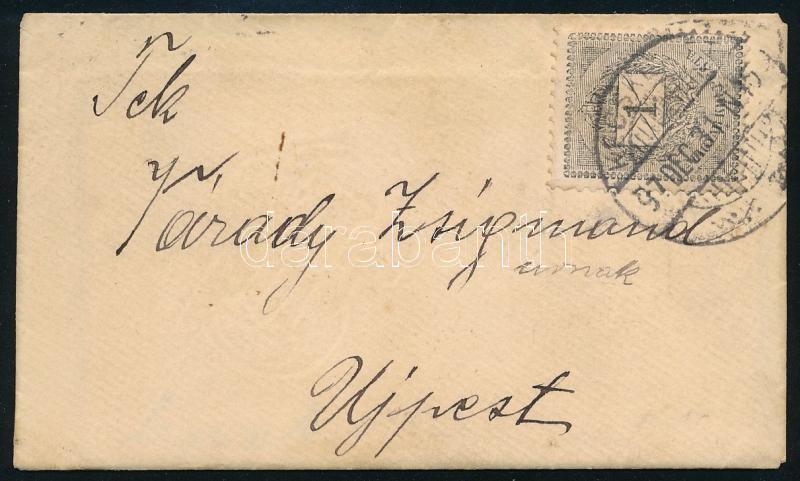 Tek
Várady Zsigmond
úrnak
Ujpest
1
97 DEC
darabanth